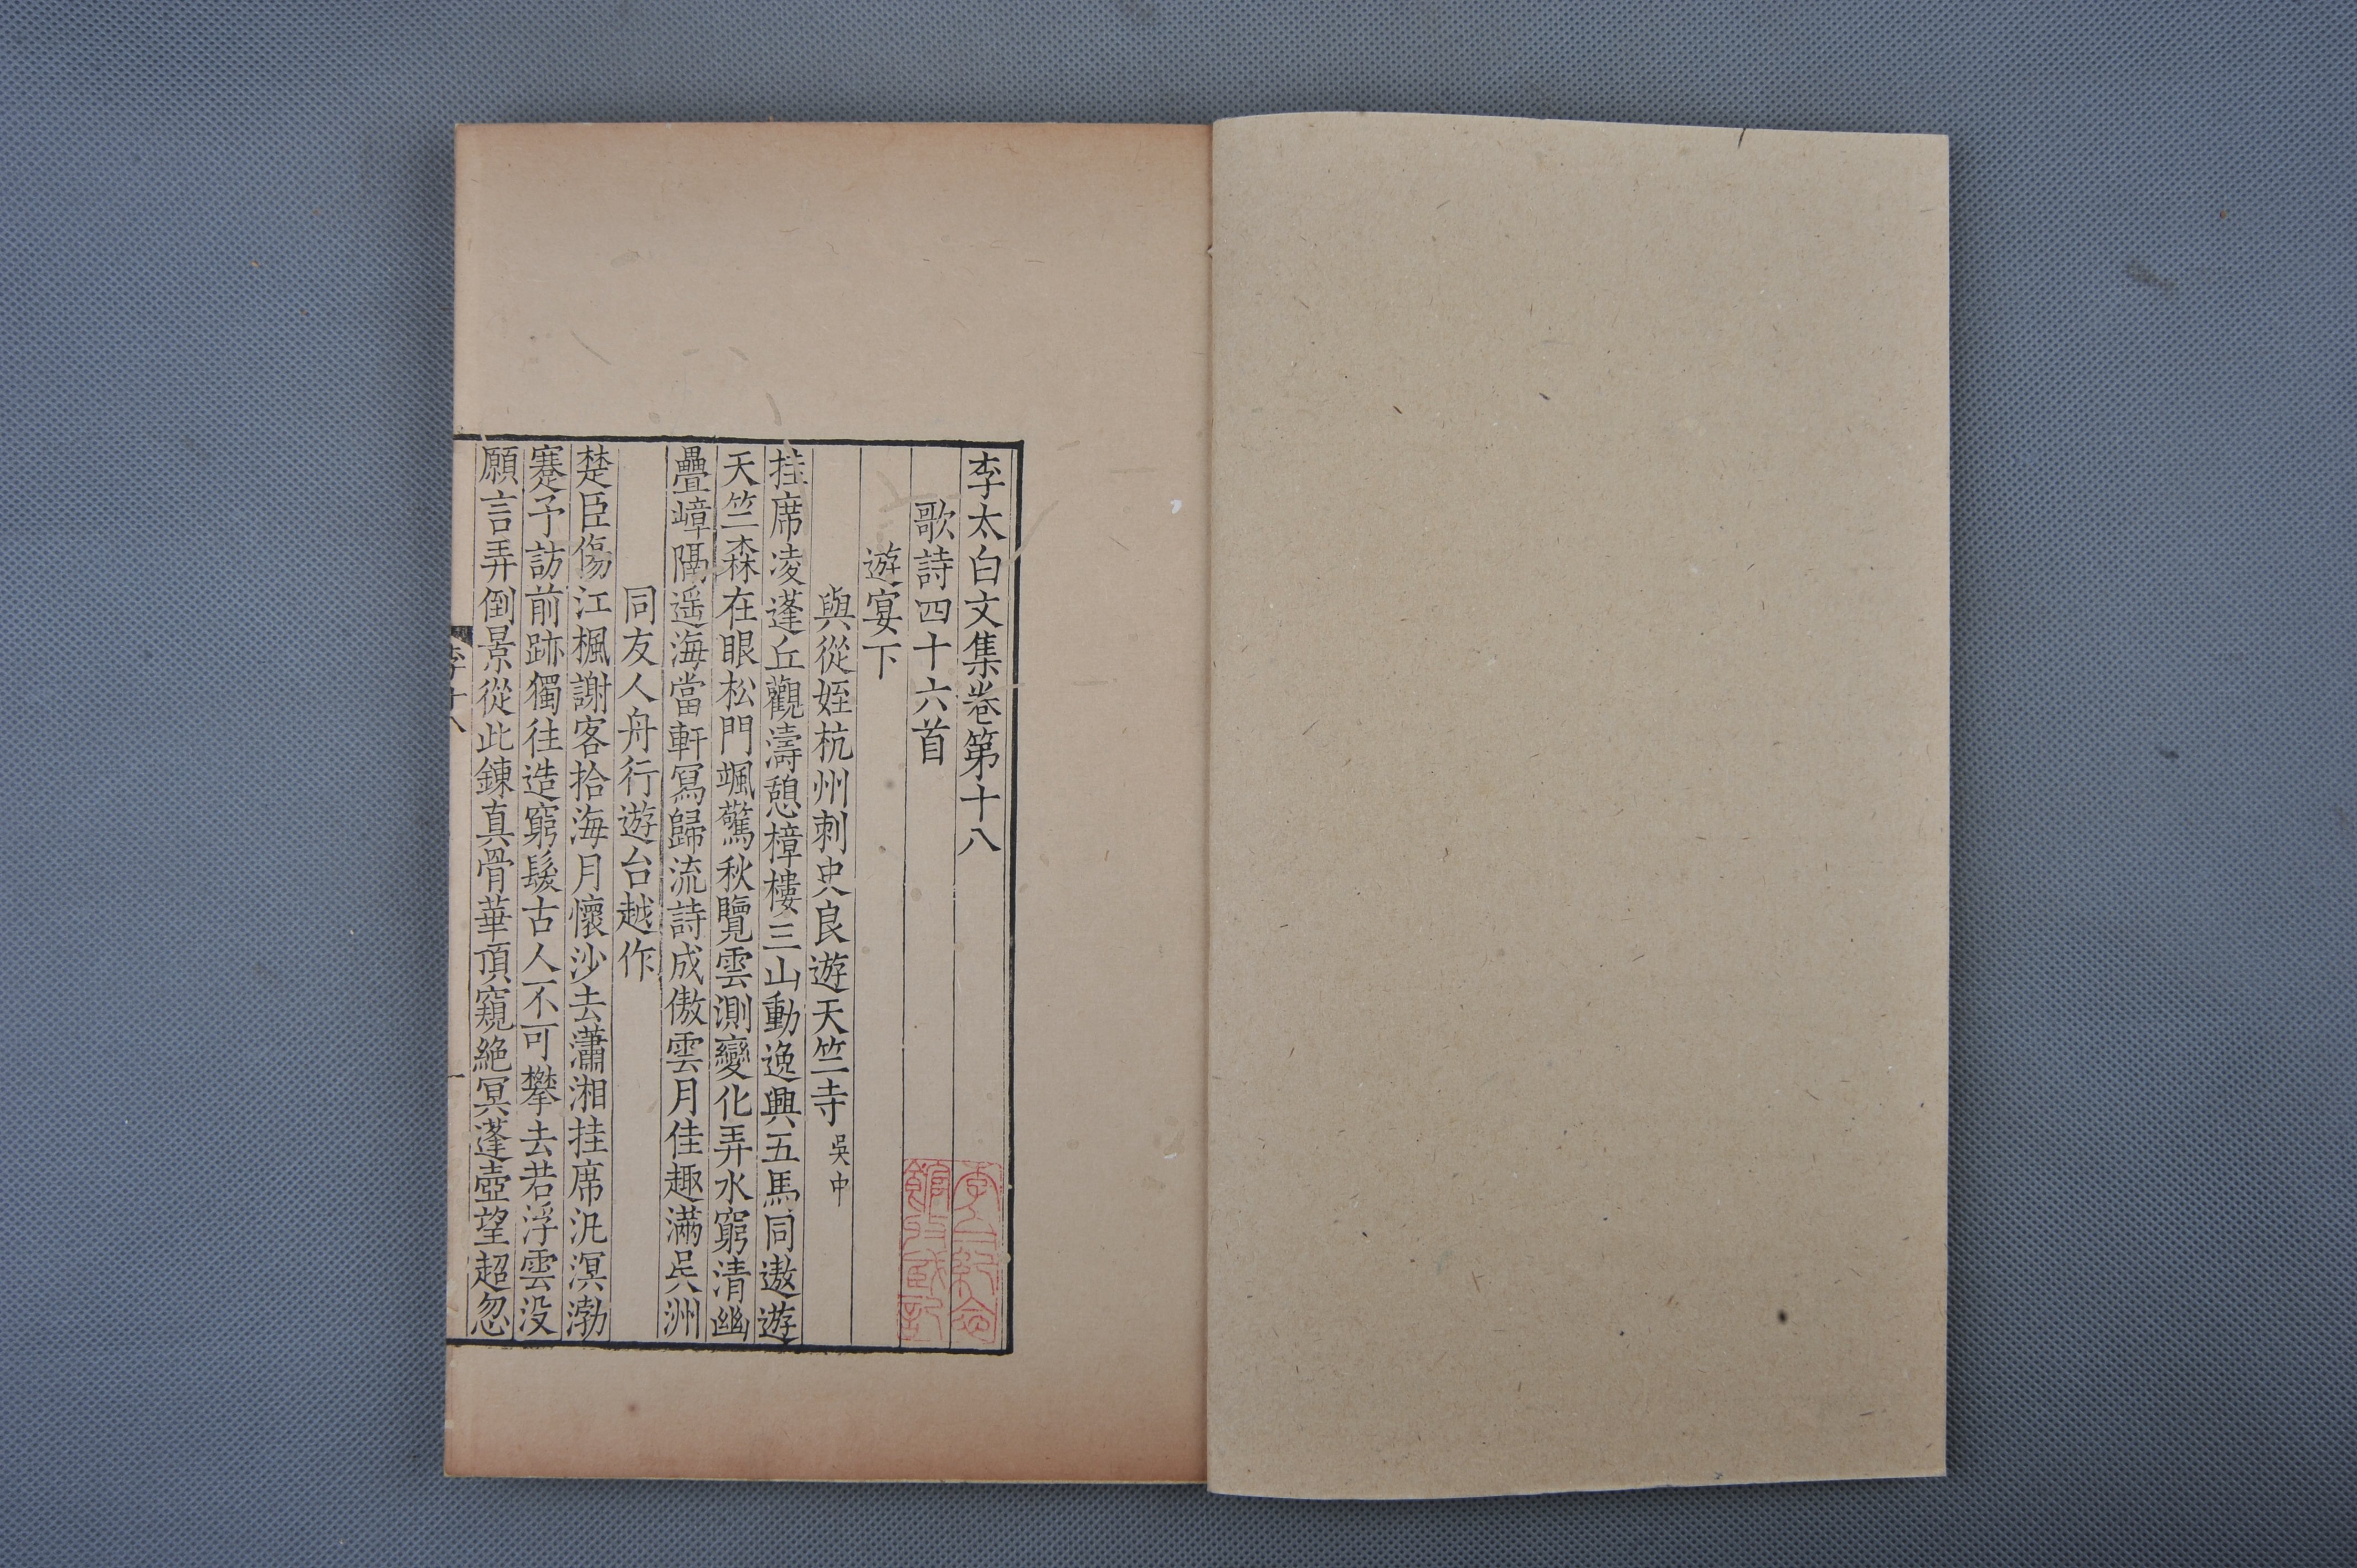 李太白文集卷第十八
歌詩四十六首
遊宴下
與從姪杭州刺史良遊天竺寺 吳中
挂席凌蓬丘觀濤憩樟樓三山動逸興五馬同遨遊
天竺森在眼松門颯驚秋覽雲測變化弄水窮清幽
疊嶂隔遥海當軒寫歸流詩成傲雲月佳趣滿吳洲
同友人舟行遊台越作
楚臣傷江楓謝客拾海月懷沙去瀟湘挂席汎溟渤
蹇予訪前跡獨往造窮髮古人不可攀去若浮雲没
願言弄倒景從此鍊真骨華頂窺絶冥蓬壺望超忽
李十八
一